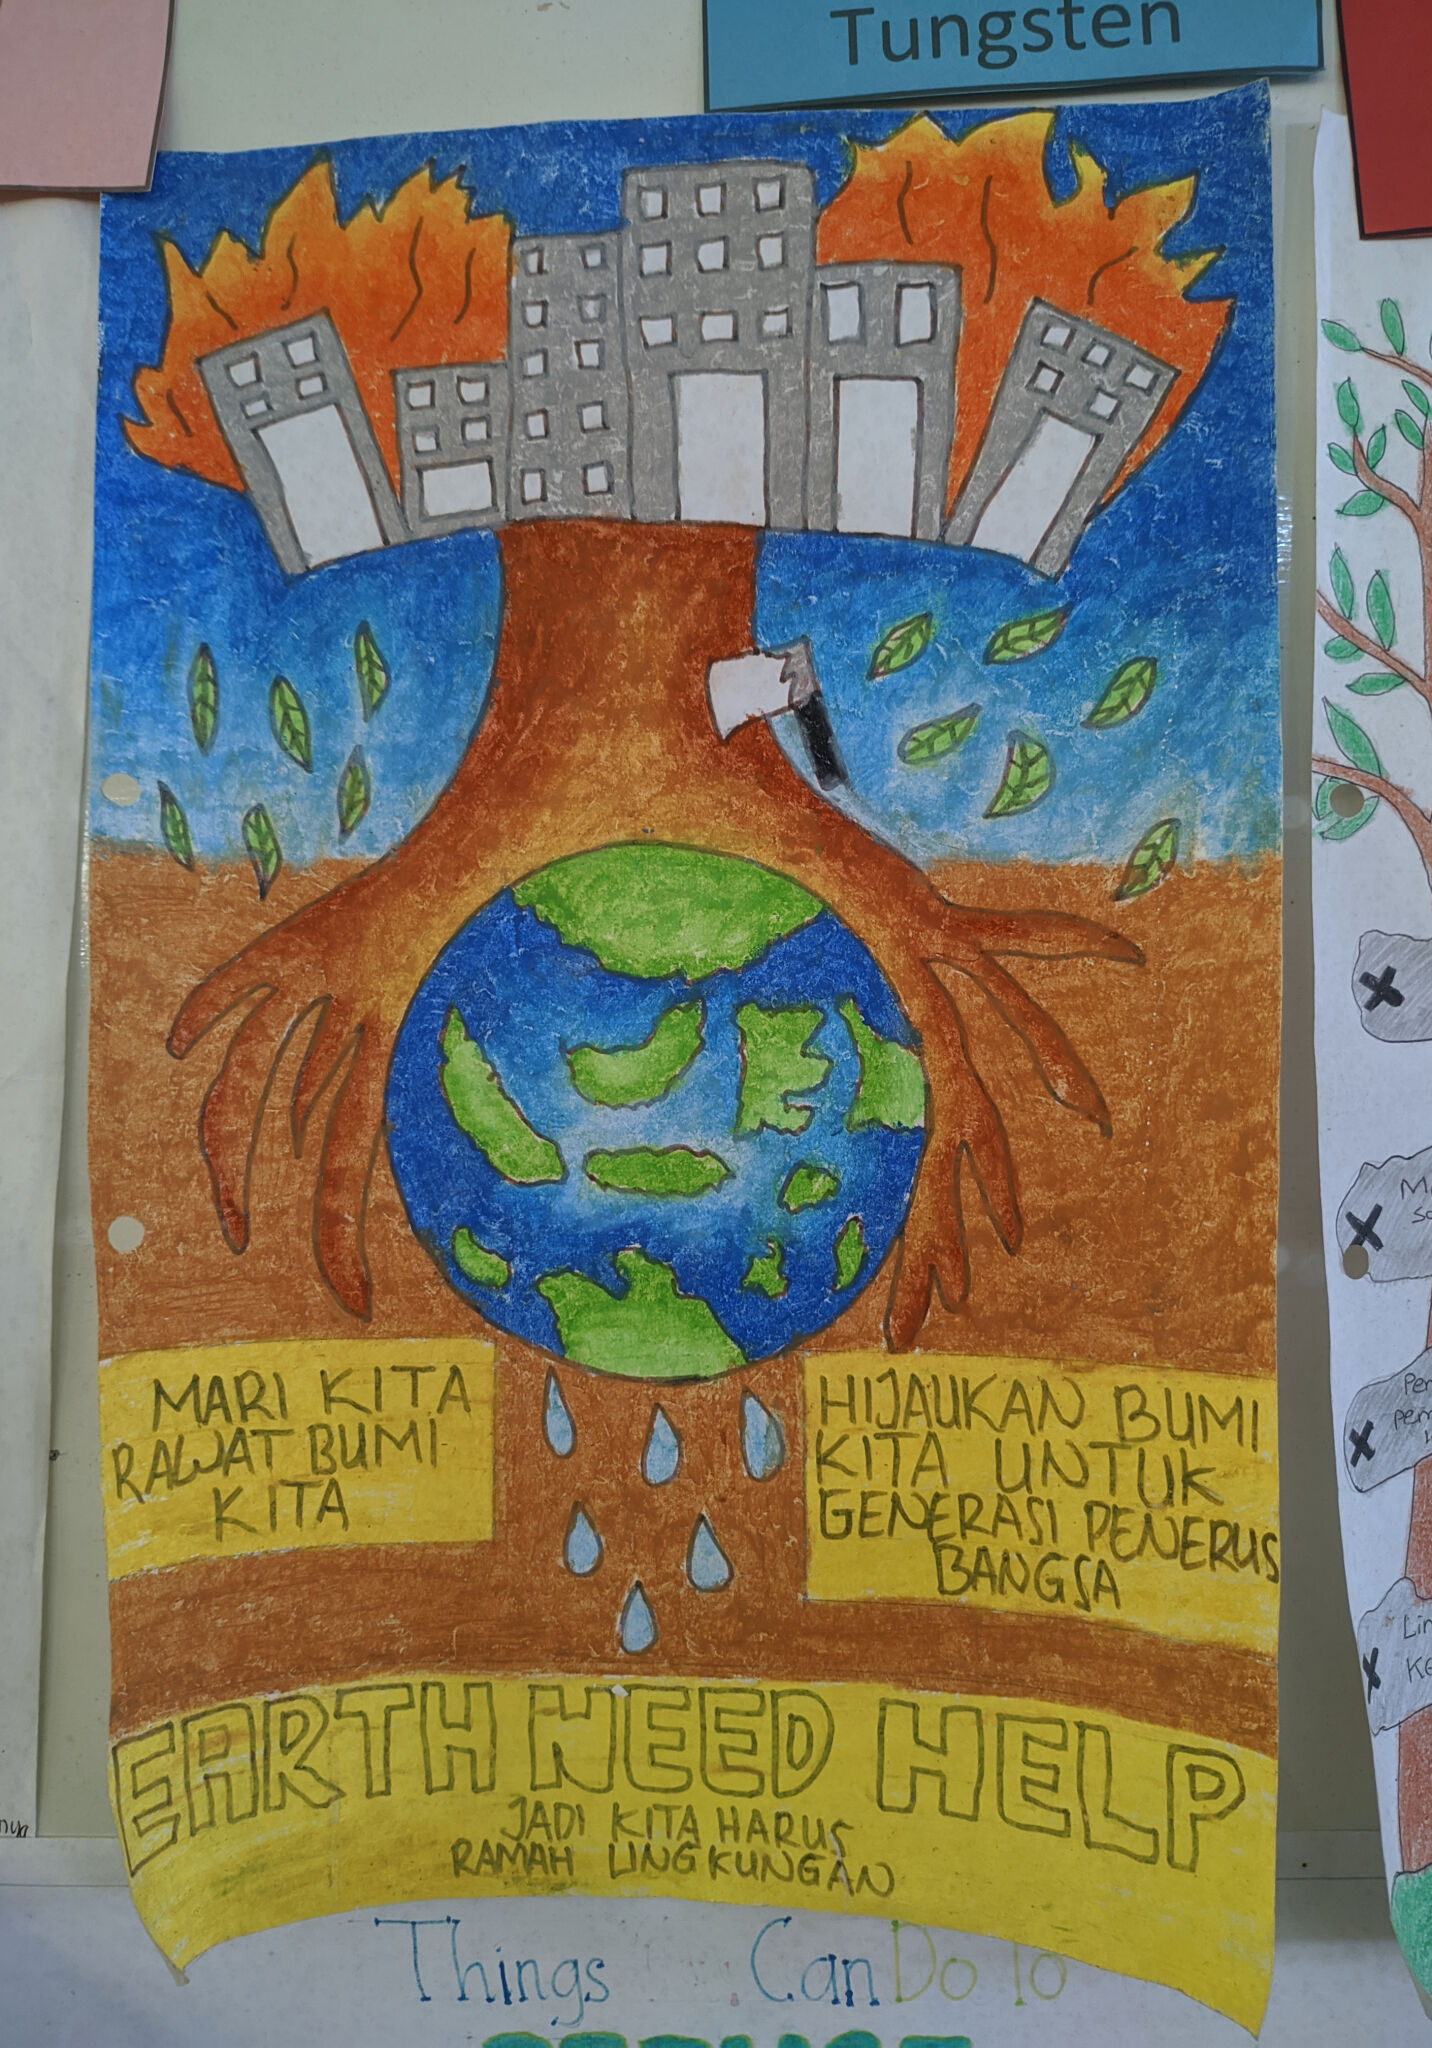 Tungsten
MARI KITA
RAWAT BUMI
KITA
HIJAUKAN BUMI
KITA UNTUK
GENERASI PENERUS
BANGSA
EARTH NEED HELP
JADI KITA HARUS
RAMAH LINGKUNGAN
Things Can Do To